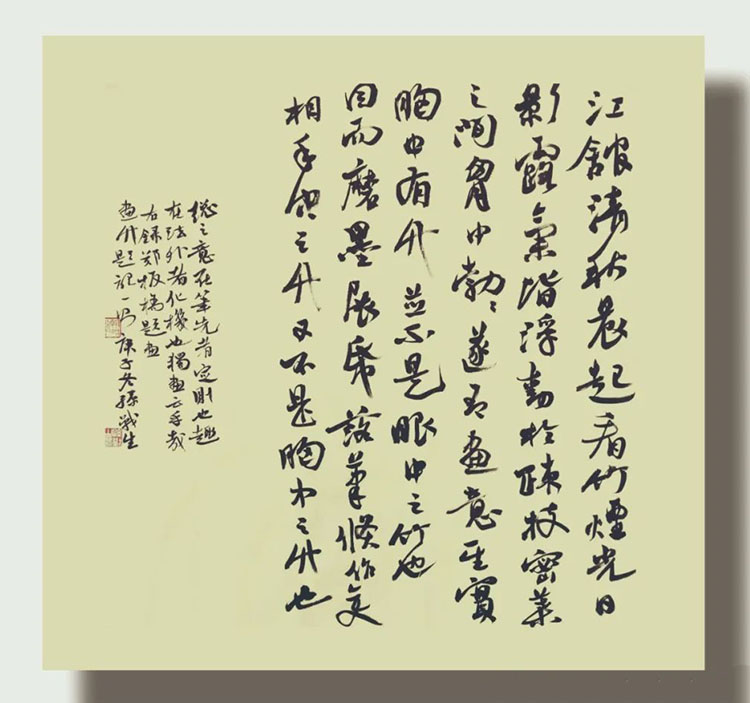 江館清秋晨起看竹煙光日
影露氣皆浮動於疎枝密葉
之間胷中勃〻遂有畫意其實
胸中有竹並不是眼中之竹也
因而磨墨展紙落筆倏作变
相手中之竹又不是胸中之竹也
總之意在筆先者定則也趣
在法外者化機也獨畫云乎哉
右錄鄭板橋題畫
畫竹題記一則庚子冬孫戰生